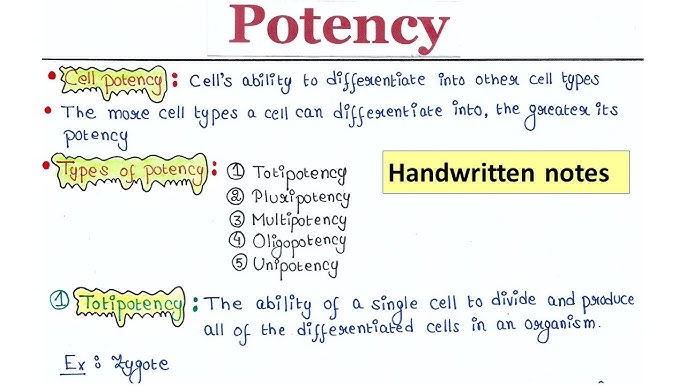 Potency
• Cell potency : Cell's ability to differentiate into other cell types
• The more cell types a cell can differentiate into, the greater its
potency
• Types of potency : ① Totipotency
② Pluripotency
③ Multipotency
④ Oligopotency
⑤ Unipotency
Handwritten notes
① Totipotency : The ability of a single cell to divide and produce
all of the differentiated cells in an organism.
Ex : Zygote